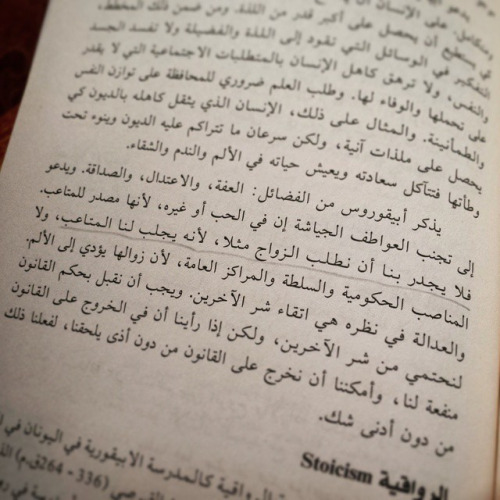 ومتكامل. على الإنسان أن
لي يستطيع أن يحصل على أكبر قدر من اللذة. ومن ضمن ذلك المخطط،
التفكير في الوسائل التي تقود إلى اللذة والفضيلة ولا تفسد الجسد
والنفس، ولا ترهق كاهل الإنسان بالمتطلبات الاجتماعية التي لا يقدر
على تحملها والوفاء لها. وطلب العلم ضروري للمحافظة على توازن النفس
والطمأنينة. والمثال على ذلك، الإنسان الذي يثقل كاهله بالديون كي
يحصل على ملذات آنية، ولكن سرعان ما تتراكم عليه الديون وينوء تحت
وطأتها فتتآكل سعادته ويعيش حياته في الألم والندم والشقاء.
يذكر أبيقوروس من الفضائل: العفة، والاعتدال، والصداقة. ويدعو
إلى تجنب العواطف الجياشة إن في الحب أو غيره، لأنها مصدر للمتاعب.
فلا يجدر بنا أن نطلب الزواج مثلا، لأنه يجلب لنا المتاعب، ولا
المناصب الحكومية والسلطة والمراكز العامة، لأن زوالها يؤدي إلى الألم.
والعدالة في نظره هي اتقاء شر الآخرين. ويجب أن نقبل بحكم القانون
لنحتمي من شر الآخرين، ولكن إذا رأينا أن في الخروج على القانون
منفعة لنا، وأمكننا أن نخرج على القانون من دون أذى يلحقنا، لفعلنا ذلك
من دون أدنى شك.
الرواقية Stoicism
الرواقية كالمدرسة الابيقورية في اليونان في
(336 - 264ق.م)